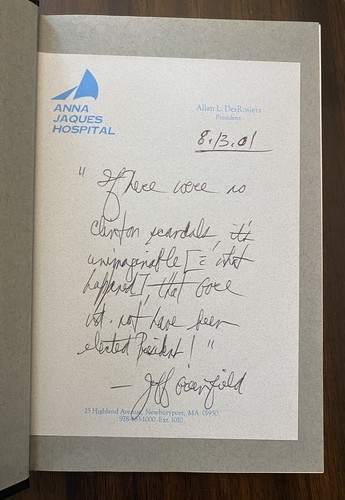 ANNA
JAQUES
HOSPITAL
Allan L. DesRosiers
President
8.13.01
" If there were no
Clinton scandals, it's
unimaginable [ = what
happened], that Gore
wd. not have been
elected President! "
— Jeff Greenfield
25 Highland Avenue, Newburyport, MA 01950
978-463-1000 Ext. 1010